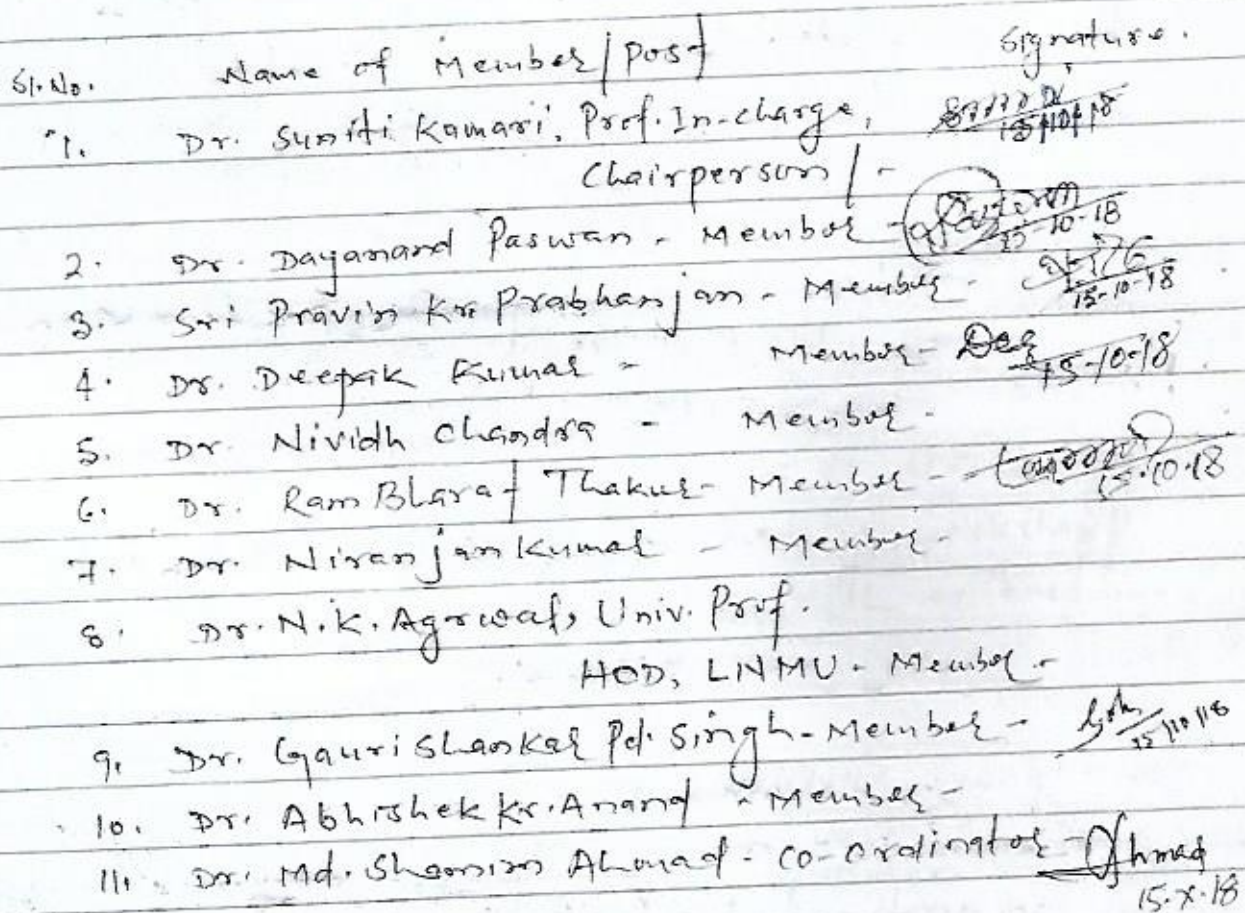 Sl. No. Name of Member/post Signature.
1. Dr. Suniti Kumari, Prof. In-charge, 15/10/18
Chairperson/-
2. Dr. Dayanand Paswan - Member - 15-10-18
3. Sri Pravin Kr. Prabhanjan - Member - 15-10-18
4. Dr. Deepak Kumar - Member - 15-10-18
5. Dr. Nividh Chandra - Member -
6. Dr. Ram Bharat Thakur - Member - 15-10-18
7. Dr. Niranjan Kumar - Member -
8. Dr. N. K. Agrwal, Univ. Prof.
HOD, LNMU - Member -
9. Dr. Gauri Shankar Pd. Singh - Member - 15/10/18
10. Dr. Abhishek Kr. Anand - Member -
11. Dr. Md. Shamim Ahmad - Co-ordinator Ahmad
15-X-18